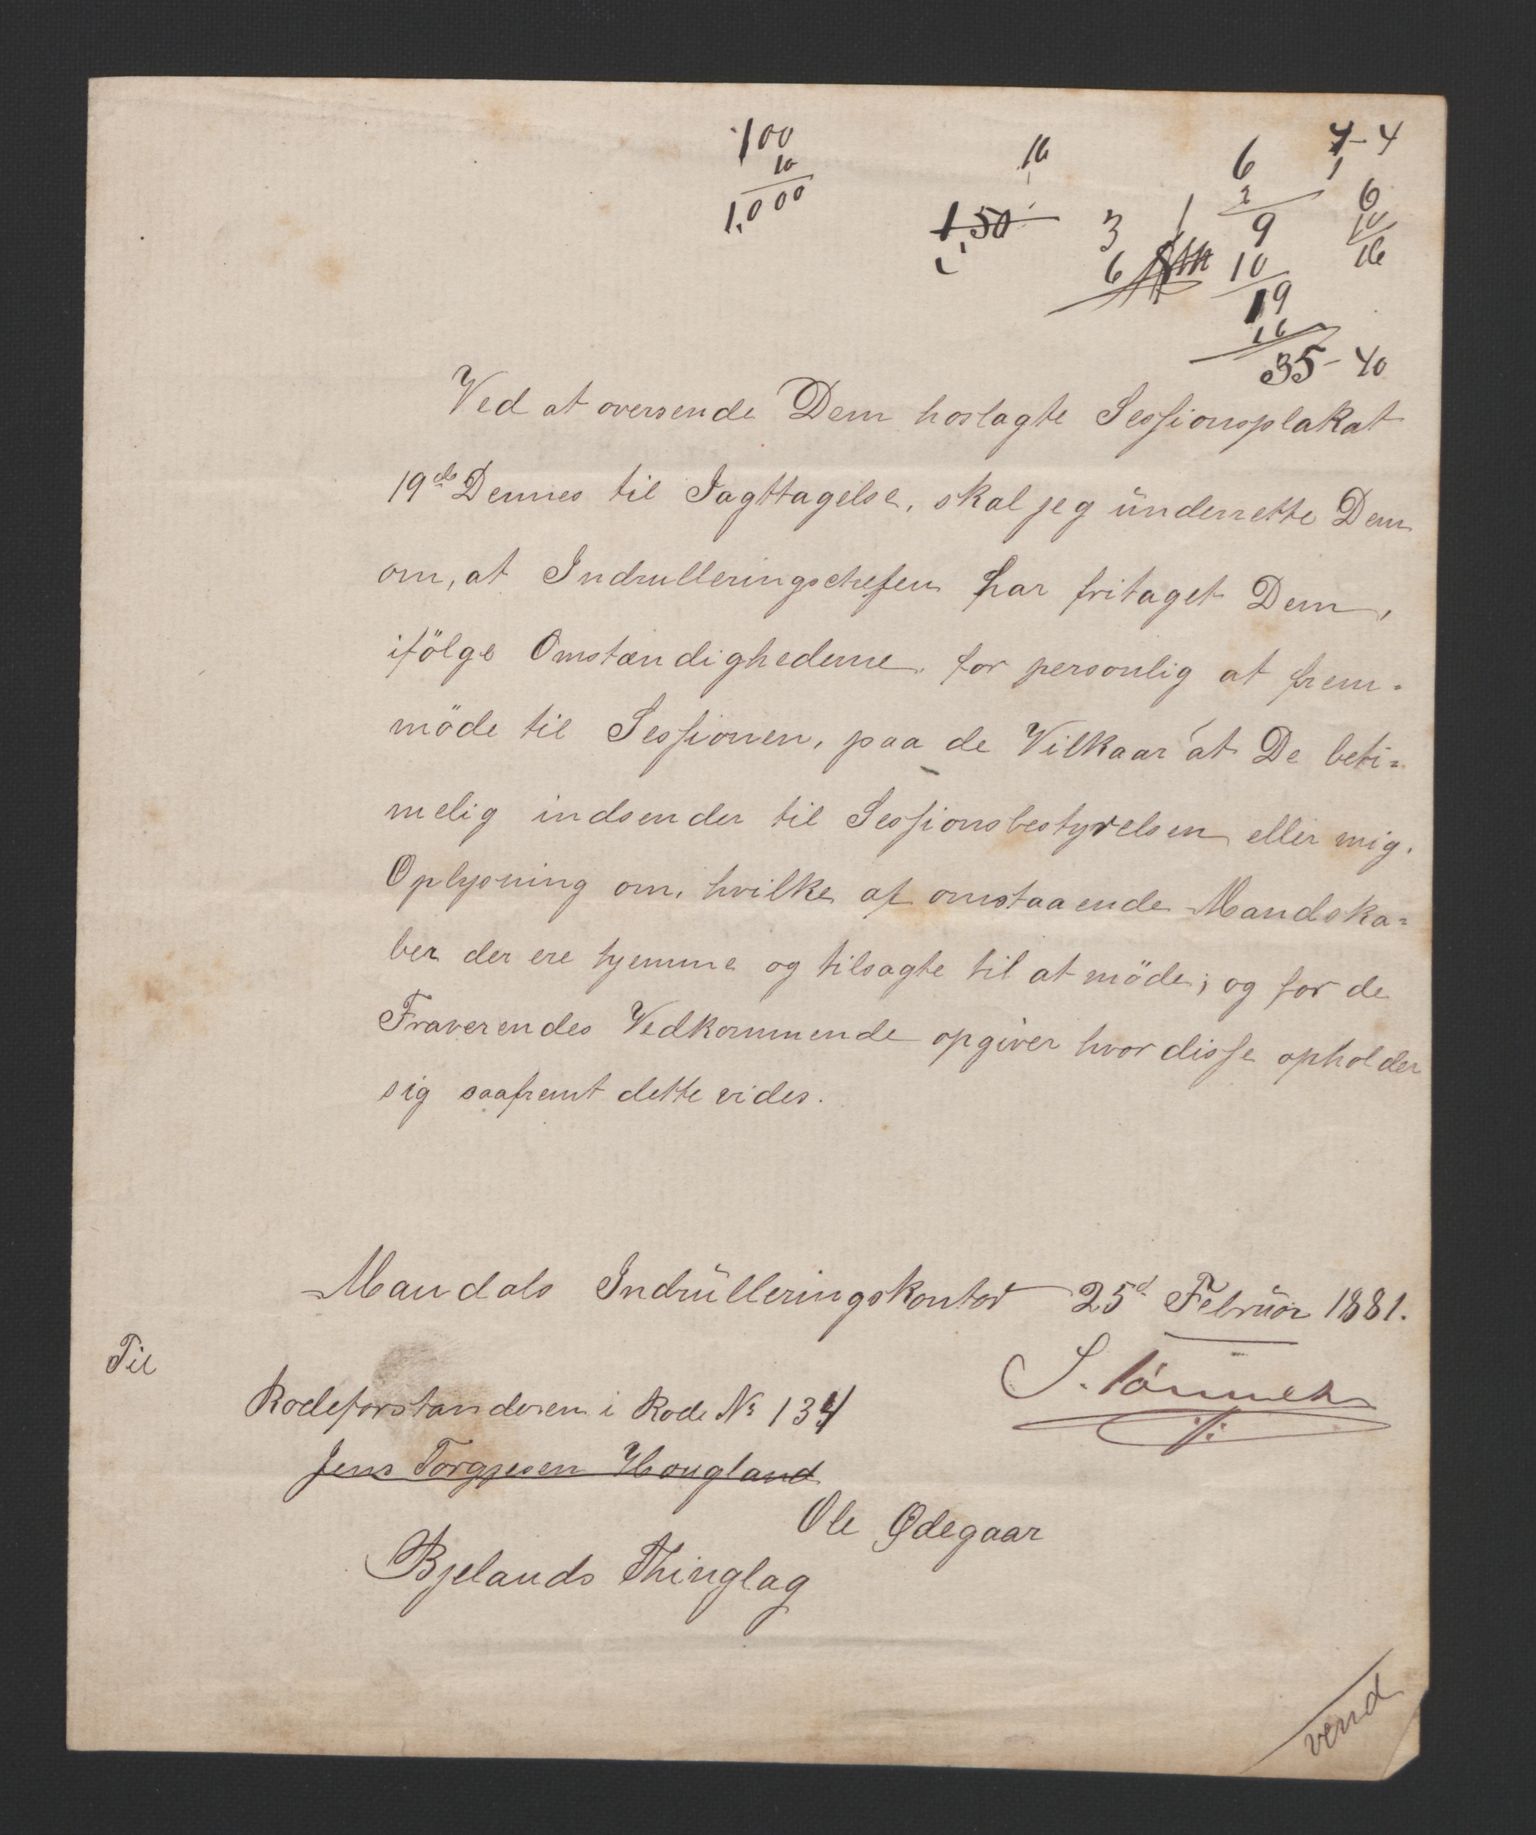 100
10
1,000
16
1,50
3 1
6
6
2
9
10
19
16
35-40
4-4
1
6
10
16
Ved at oversende Dem hoslagte Sessionsplakat
19de Dennes til Iagttagelse, skal jeg ünderrette Dem
om, at Indrulleringschefen har fritaget Dem,
ifölge Omstændighederne, for personlig at frem-
möde til Sessionen, paa de Vilkaar at De beti-
melig indsender til Sessionsbestyrelsen eller mig,
Oplysning om, hvilke af omstaaende Mandska-
ber der ere hjemme og tilsagte til at möde; og for de
Fraverendes Vedkommende opgiver hvor disse opholder
sig saafremt dette vides.
Mandals Indrülleringskontor 25d Februar 1881.
S. Tönnes
Til
Rodeforstanderen i Rode No 134
Jens Torgjesen Hougland
Ole Ødegaar
Bjelands Thinglag
vend